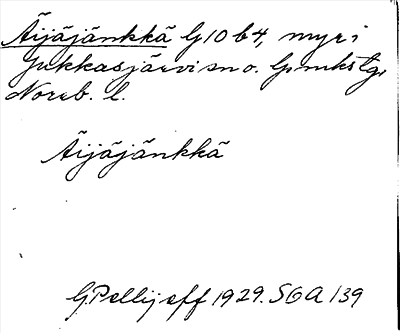 Äijäjänkkä G10 b4, myr i
Jukkasjärvi sn o. Gmnkstg,
Norrb. l.
Äijäjänkkä
G. Pellijeff 1929. SOA 139